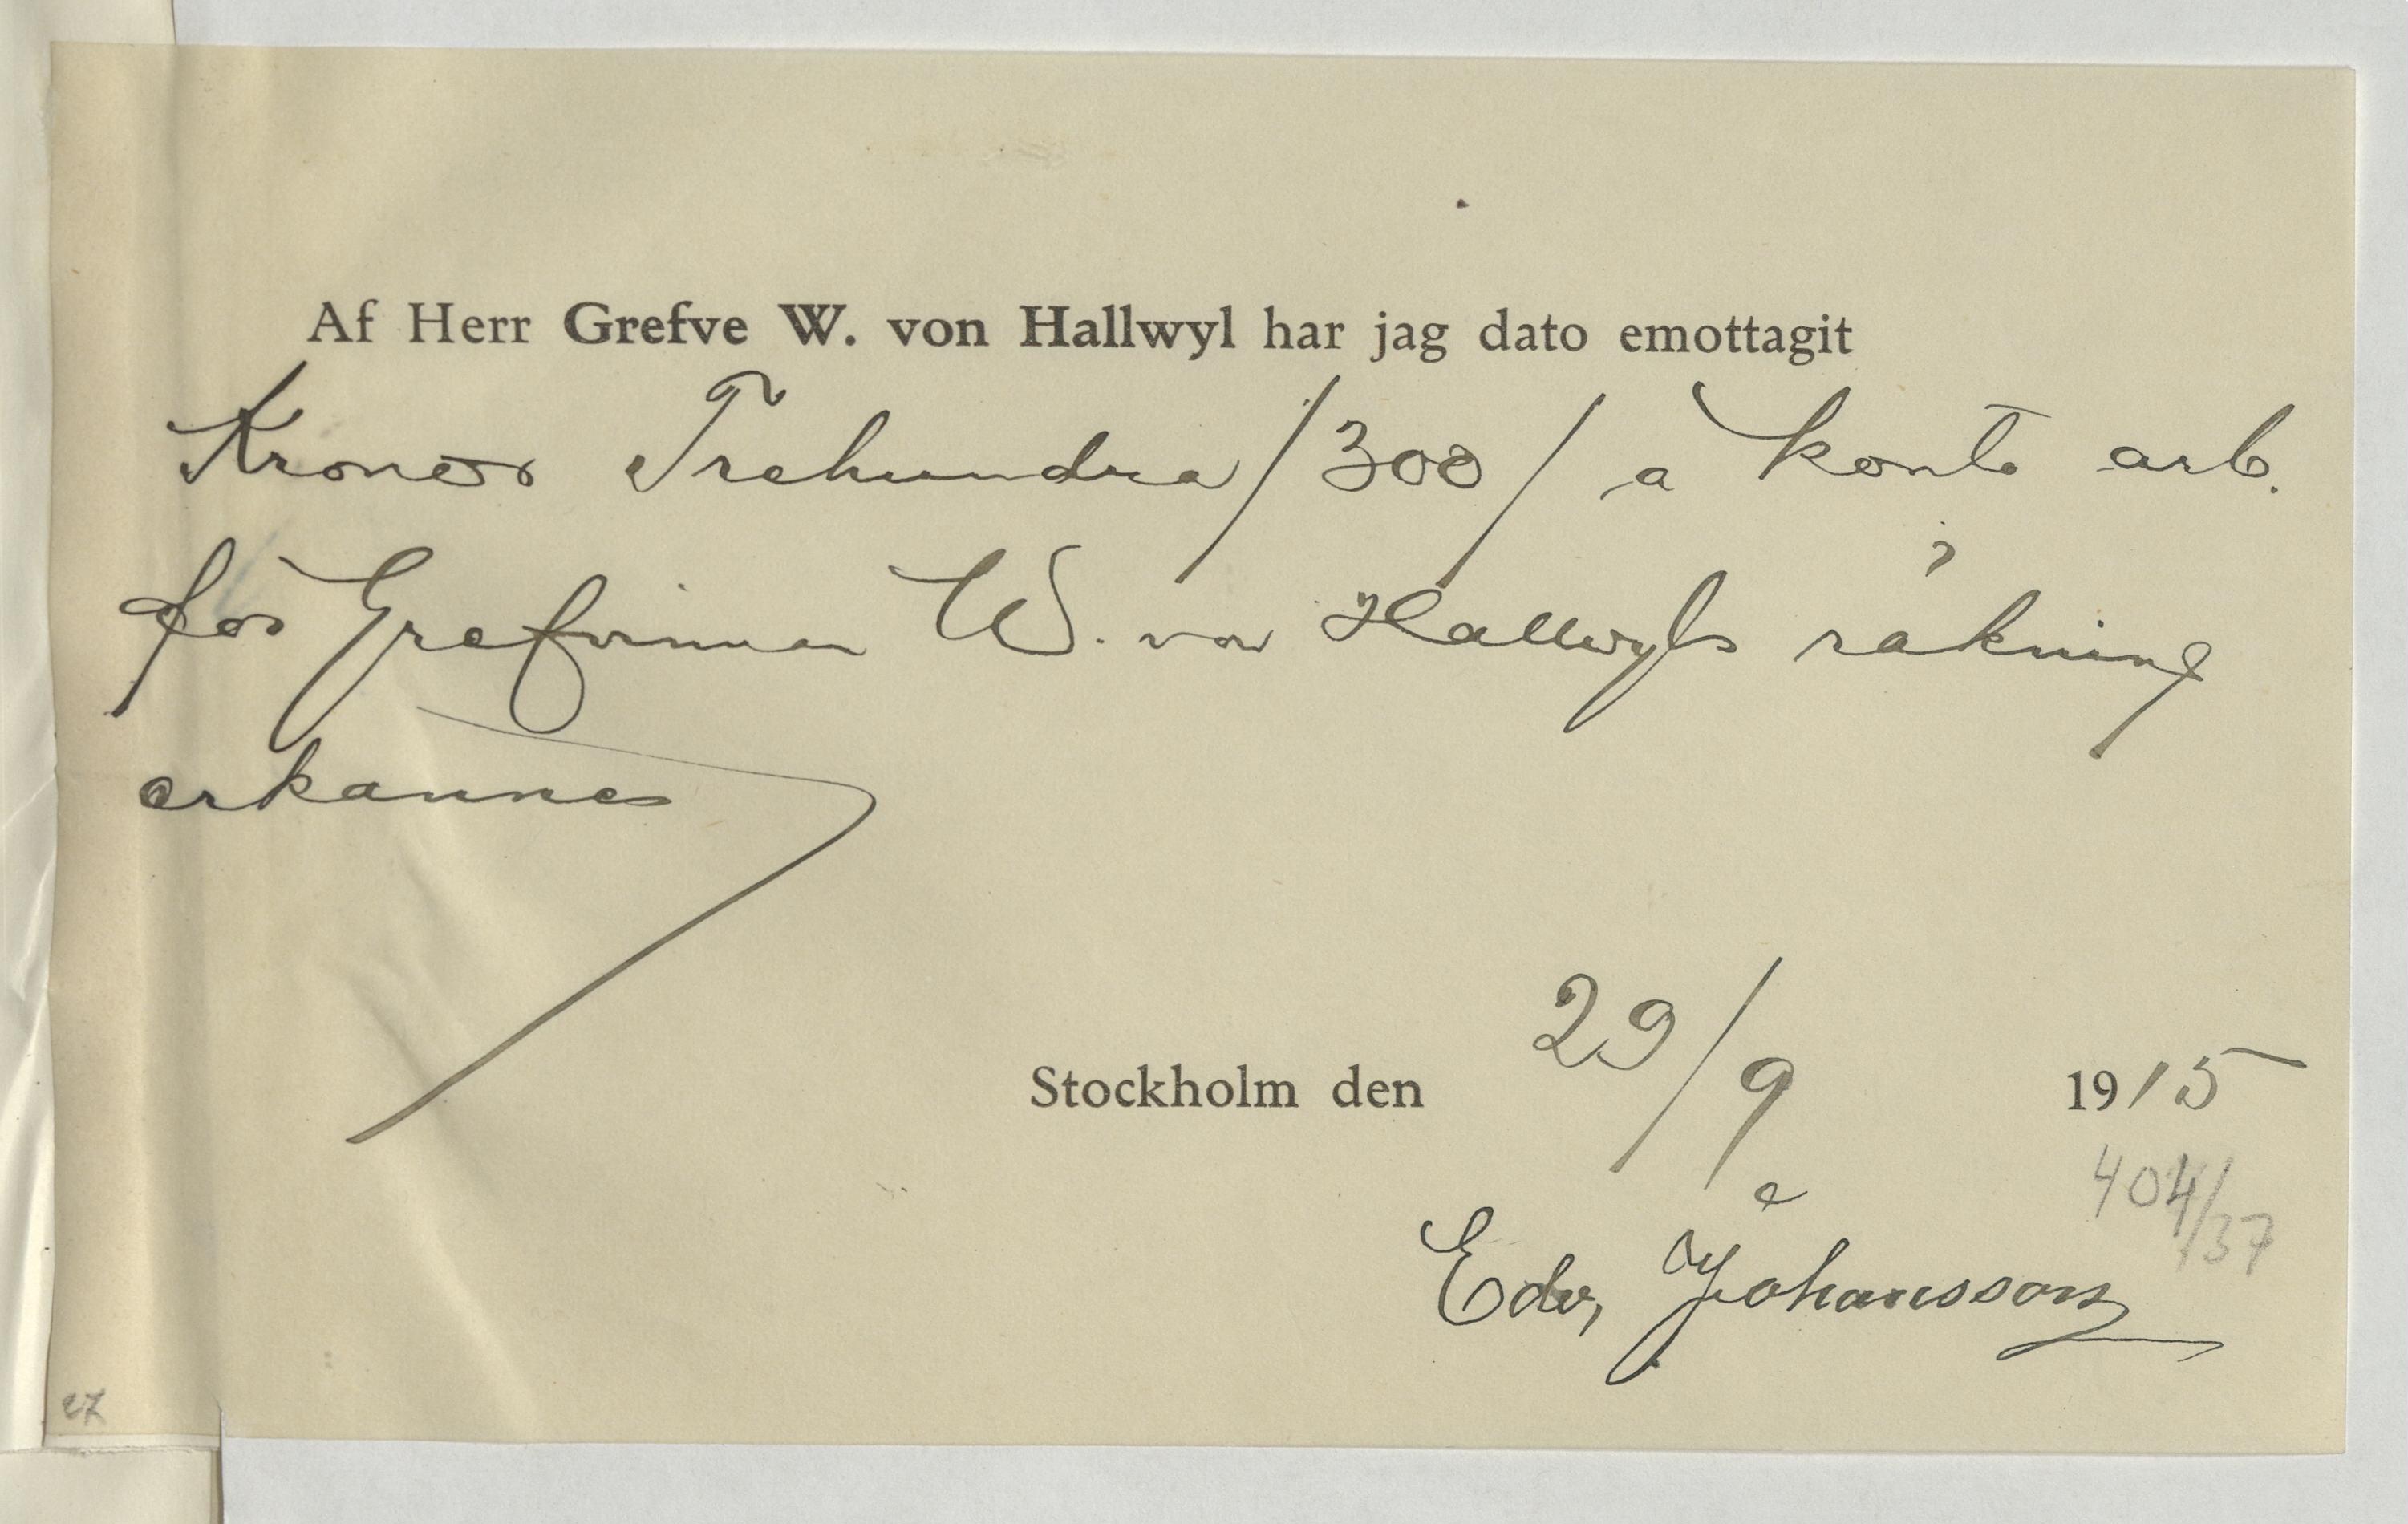 Af Herr Grefve W. von Hallwyl har jag dato emottagit
Kronor Trehundra /300/ a konto arb.
för Grefvinnan W. von Hallwyls räkning
erkännes
Stockholm den 29/9 1915
404/37
Edv, Johansson
27